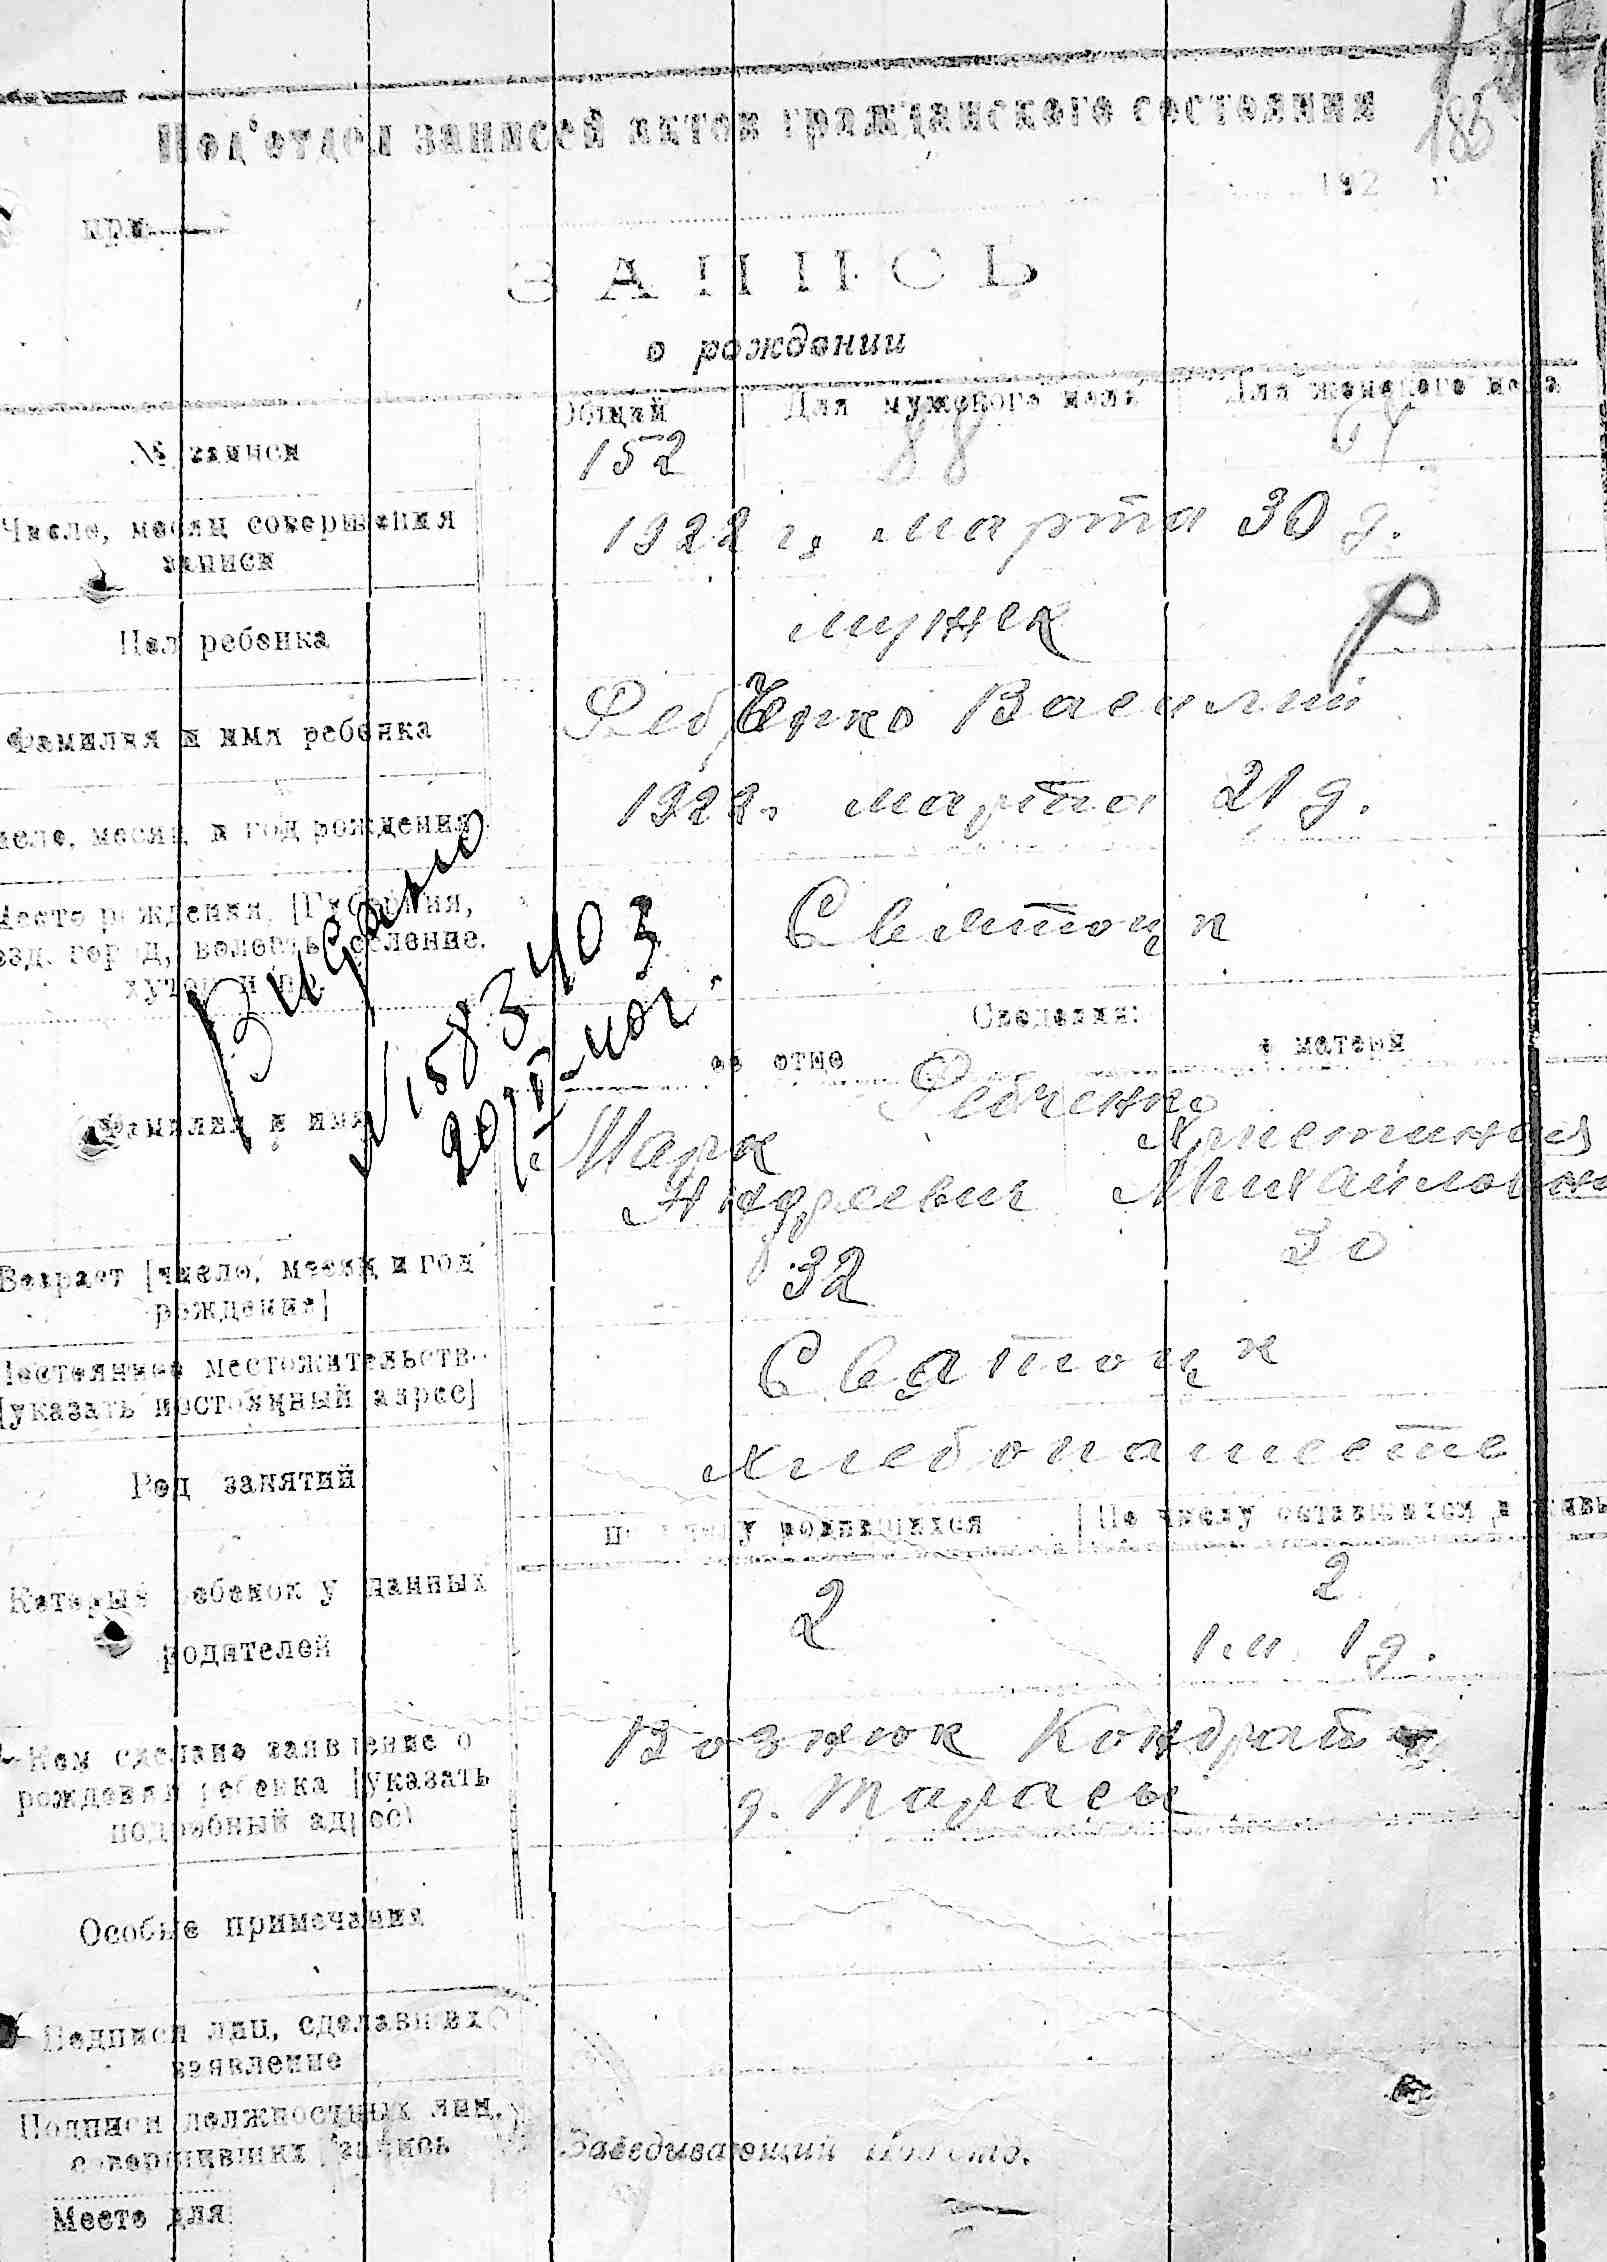 Под'отдел записей актов гражданского состояния
185
192 г
при
ЗАПИСЬ
о рождении
Общий | Для мужского пола | Для женского пола
№ записи 152 88 64
Число, месяц совершения записи
1922 г. марта 30 д.
Пол ребенка мужск
Фамилия и имя ребенка Василий
Число, месяц и год рождения 1922. марта 21 д.
Место рождения, [Губерния,
уезд, город, волость, селение,
хутор и
Святоцк
Видано
N 1583403
Сведения:
об отце о матери
Фамилия и имя
Федченко
Марк Христиния
Андреевич Михайловна
Возраст [число, месяц и год
рождения]
32 30
Постоянное местожительство
[указать постоянный адрес]
Святоцк
Род занятий хлебопашеств
По числу родившихся | По числу оставшихся в живы
Который ребенок у данных
родителей
2 2
1 м. 1 д.
Кем сделано заявление о
рождении ребенка [указать
подробный адрес]
Вознюк Кондрат
д. Тарасы
Особые примечания
Подписи лиц, сделавших
заявление
Подписи должностных лиц,
совершивших запись
Заведывающий Под'отд.
Место для